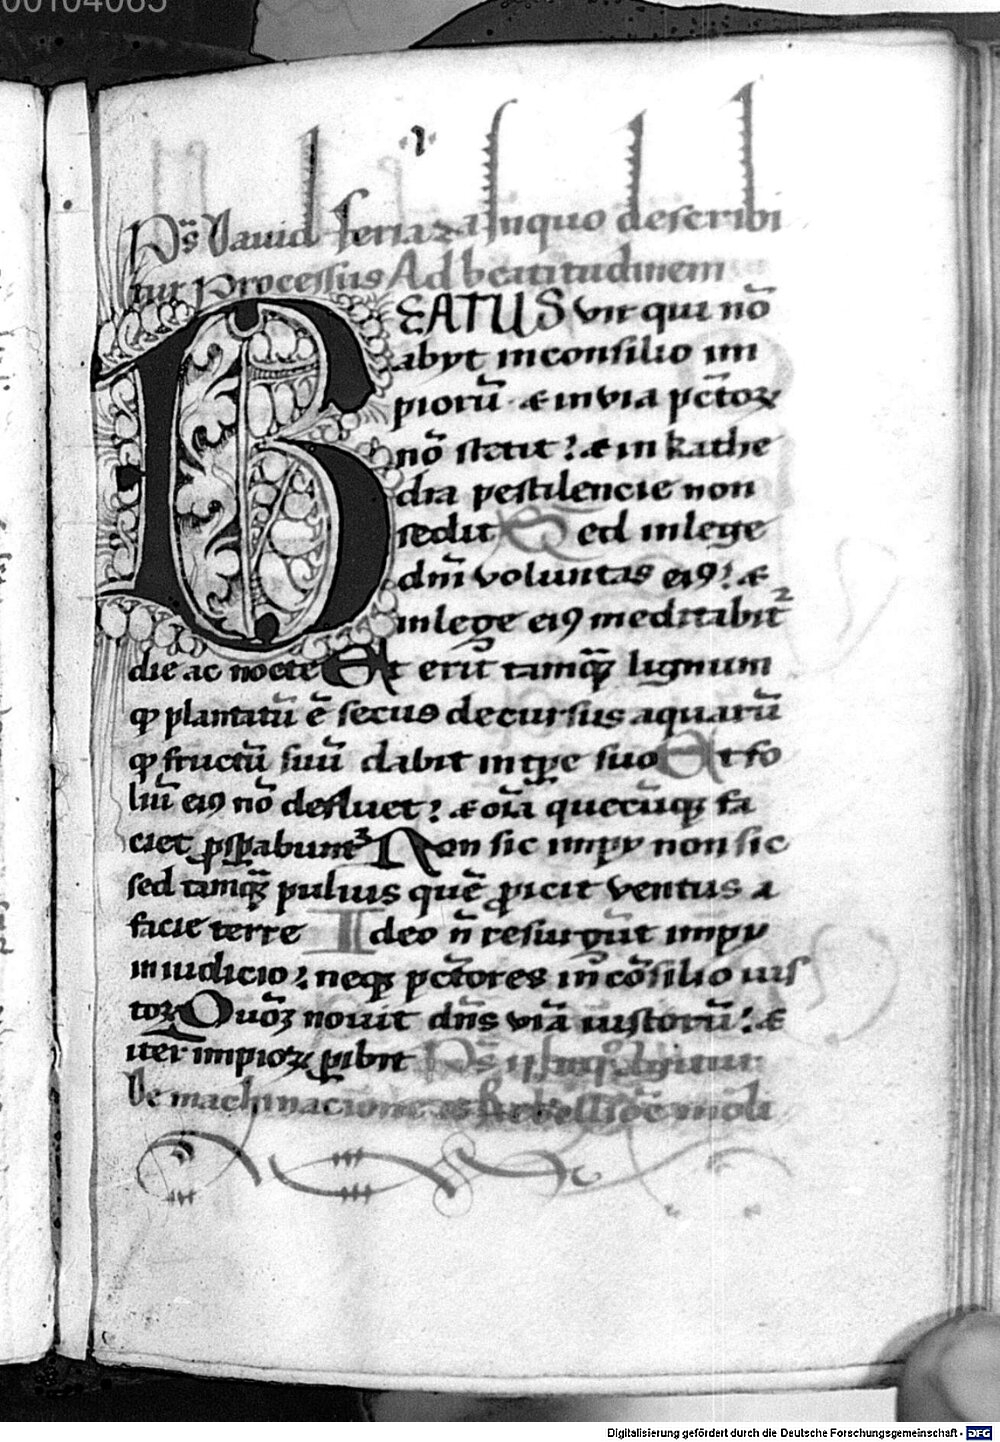 00104065
1
Ps David feria 2a In quo describi
tur Processus Ad beatitudinem
BEATUS vir qui nō
abyt in consilio im
piorū · et in via pctoꝝ
nō stetit? et in kathe
dra pestilencie non
sedit Sed in lege
dm̄ voluntas eiꝯ? et
in lege eiꝯ meditabit᷑
die ac nocte Et erit tamqȝ lignum
qꝺ plantatū ē secus decursus aquarū
qꝺ fructū suū dabit in tp̄e suo Et fo
liū eiꝯ nō defluet? et oīa quecūqȝ fa
ciet ꝓsꝑabunt᷑ Non sic impy non sic
sed tamqȝ puluis quē ꝓicit ventus a
facie terre Ideo n̄ resurgūt impy
in iudicio? neqȝ pctores in cōsilio ius
toꝝ Quoꝫ nouit dn̄s viā iustorū? et
iter impioꝝ ꝑibit Ps ij In quo agitur
De machinacione et Rebellōe
Digitalisierung gefördert durch die Deutsche Forschungsgemeinschaft - DFG